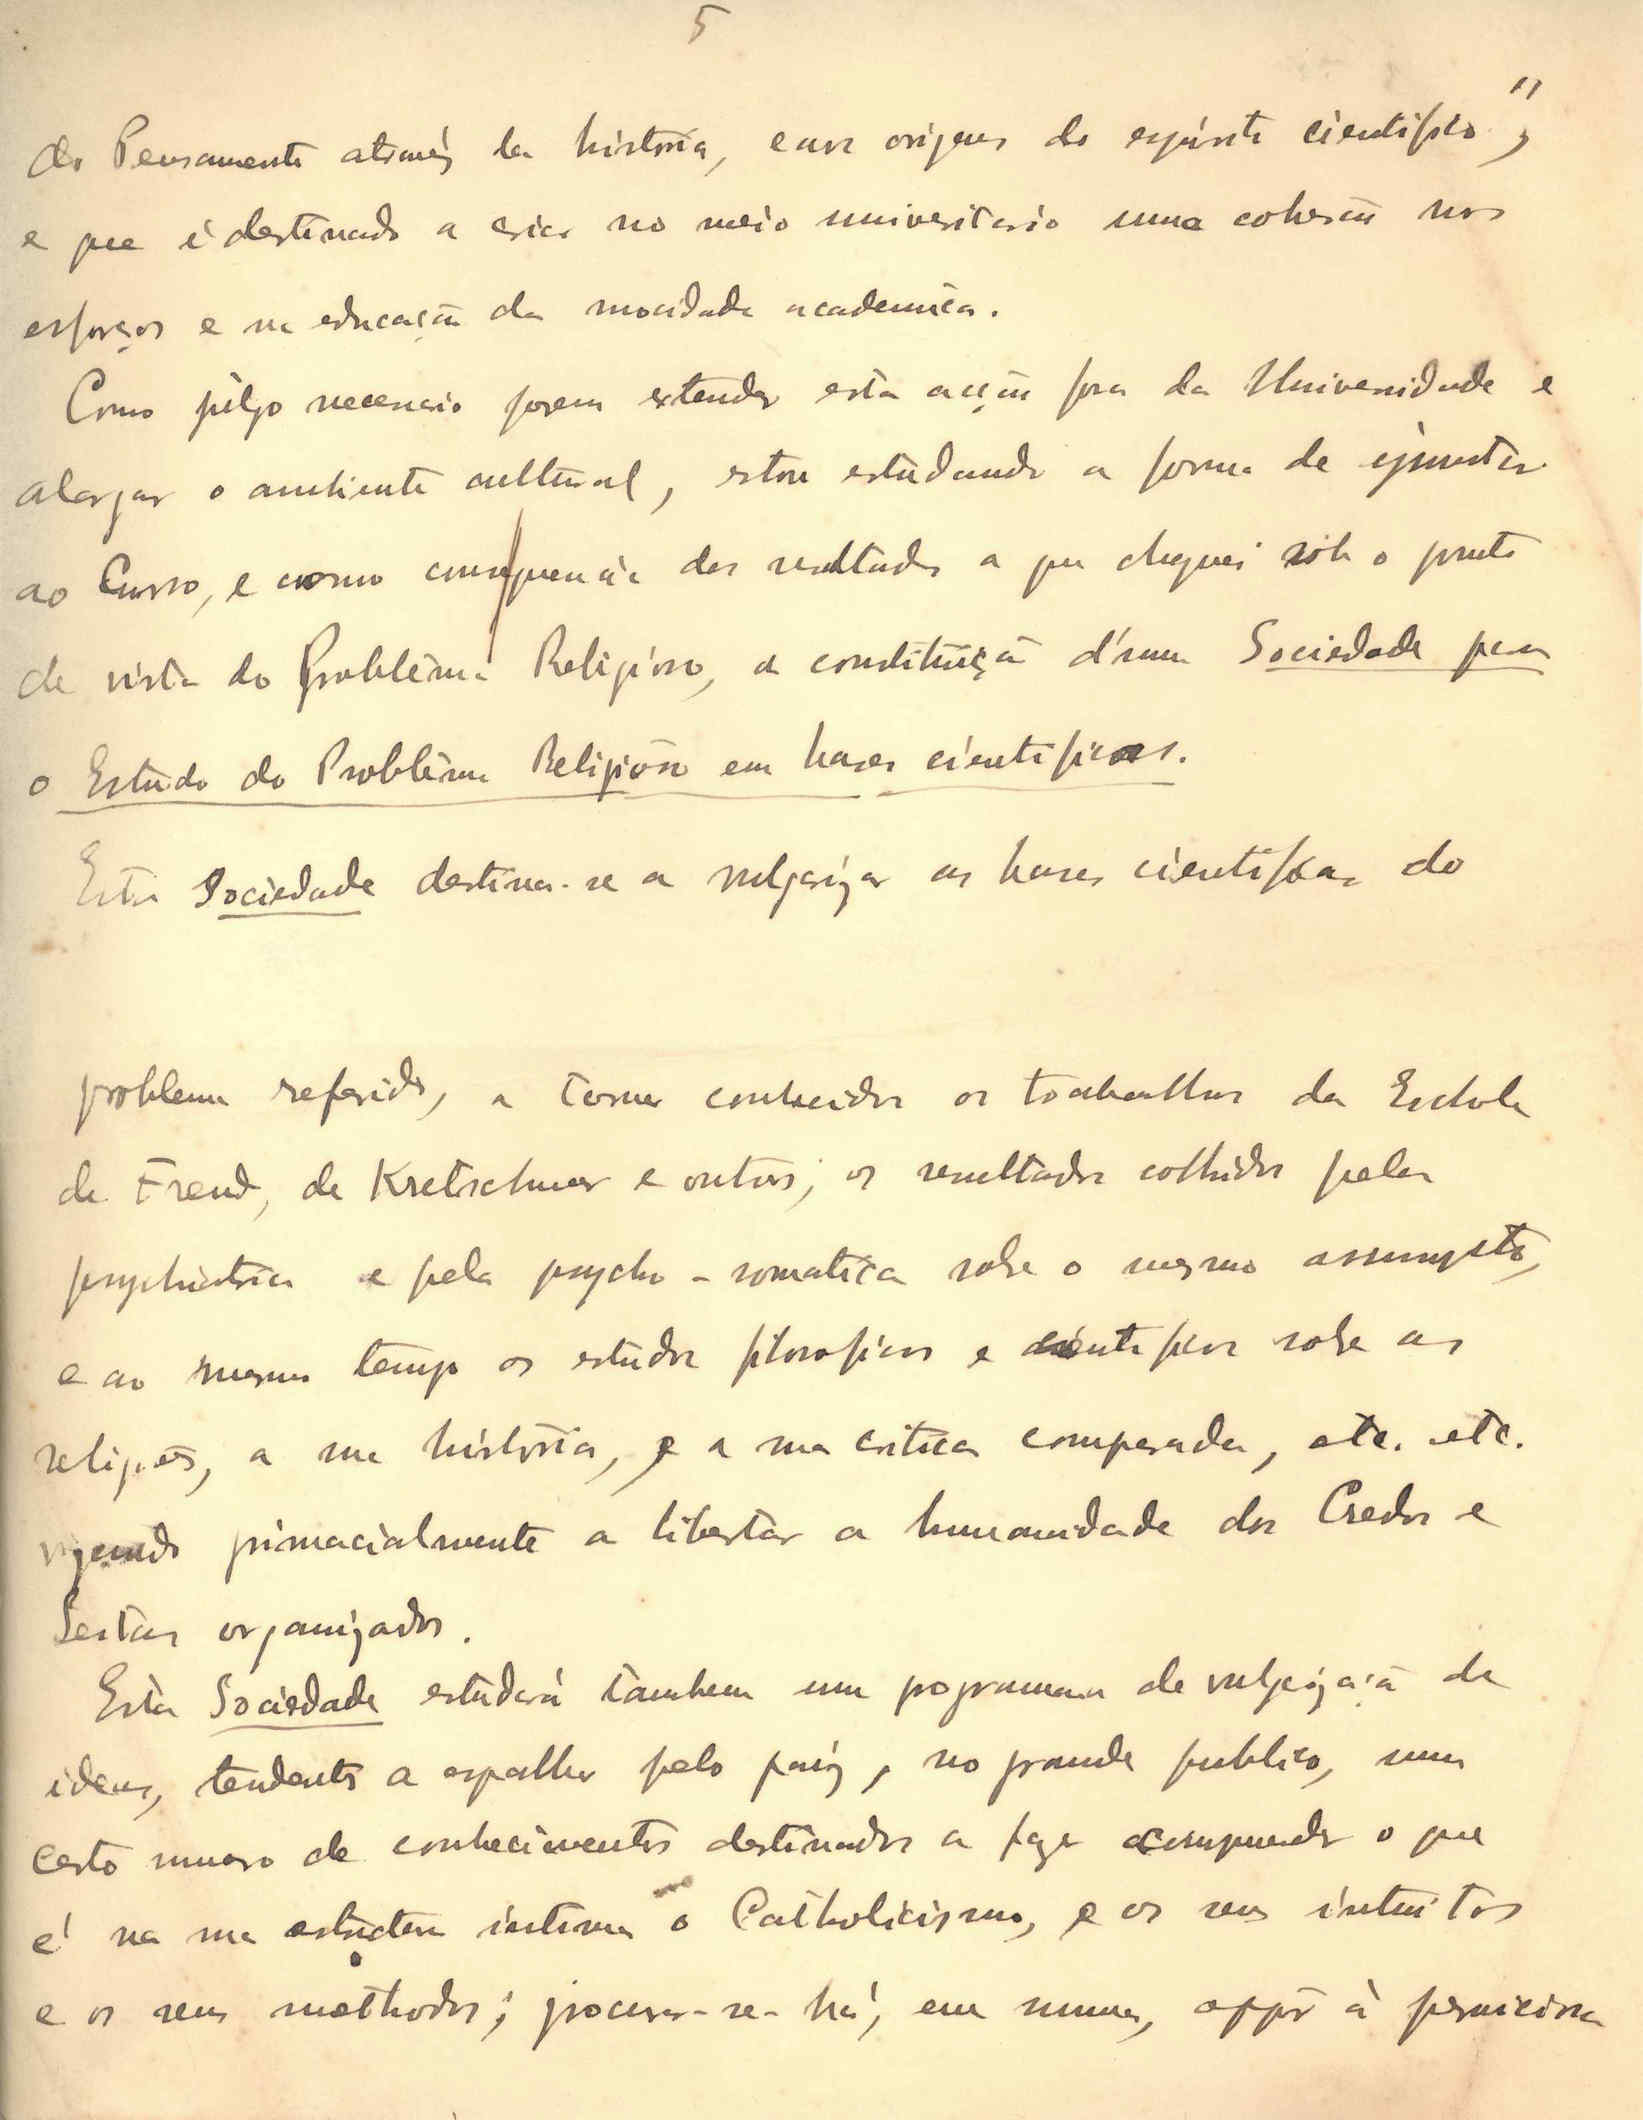 5
do Pensamento através da história, e as origens do espirito cientifico",
e que é destinado a criar no meio universitario uma cohesão nos
esforços e na educação da mocidade academica.
Como julgo necessario porem extender esta acção fora da Universidade e
alargar o ambiente cultural, estou estudando a forma de ajuntar
ao Curso, e como consequencia dos resultados a que cheguei sob o ponto
de vista do Problêma Religioso, a constituição d'uma Sociedade para
o Estudo do Problêma Religioso em bases cientificas.
Esta Sociedade destina-se a vulgarizar as bases cientificas do
problema referido, a tornar conhecidos os trabalhos da Eschola
de Freud, de Kretschmer e outros; os resultados colhidos pela
psychiatria e pela psycho-somatica sobre o mesmo assumpto,
e ao mesmo tempo os estudos filosoficos e cientificos sobre as
religiões, a sua história, e a sua critica comparada, etc. etc.
visando primacialmente a libertar a humanidade dos Credos e
Seitas organizados.
Esta Sociedade estudará tambem um programma de vulgarização de
ideas, tendente a espalhar pelo paiz, no grande publico, um
certo numero de conhecimentos destinados a fazer comprehender o que
é na sua estructura intima o Catholicismo, e os seus intuitos
e os seus methodos; procurar-se-há, em summa, oppôr à perniciosa